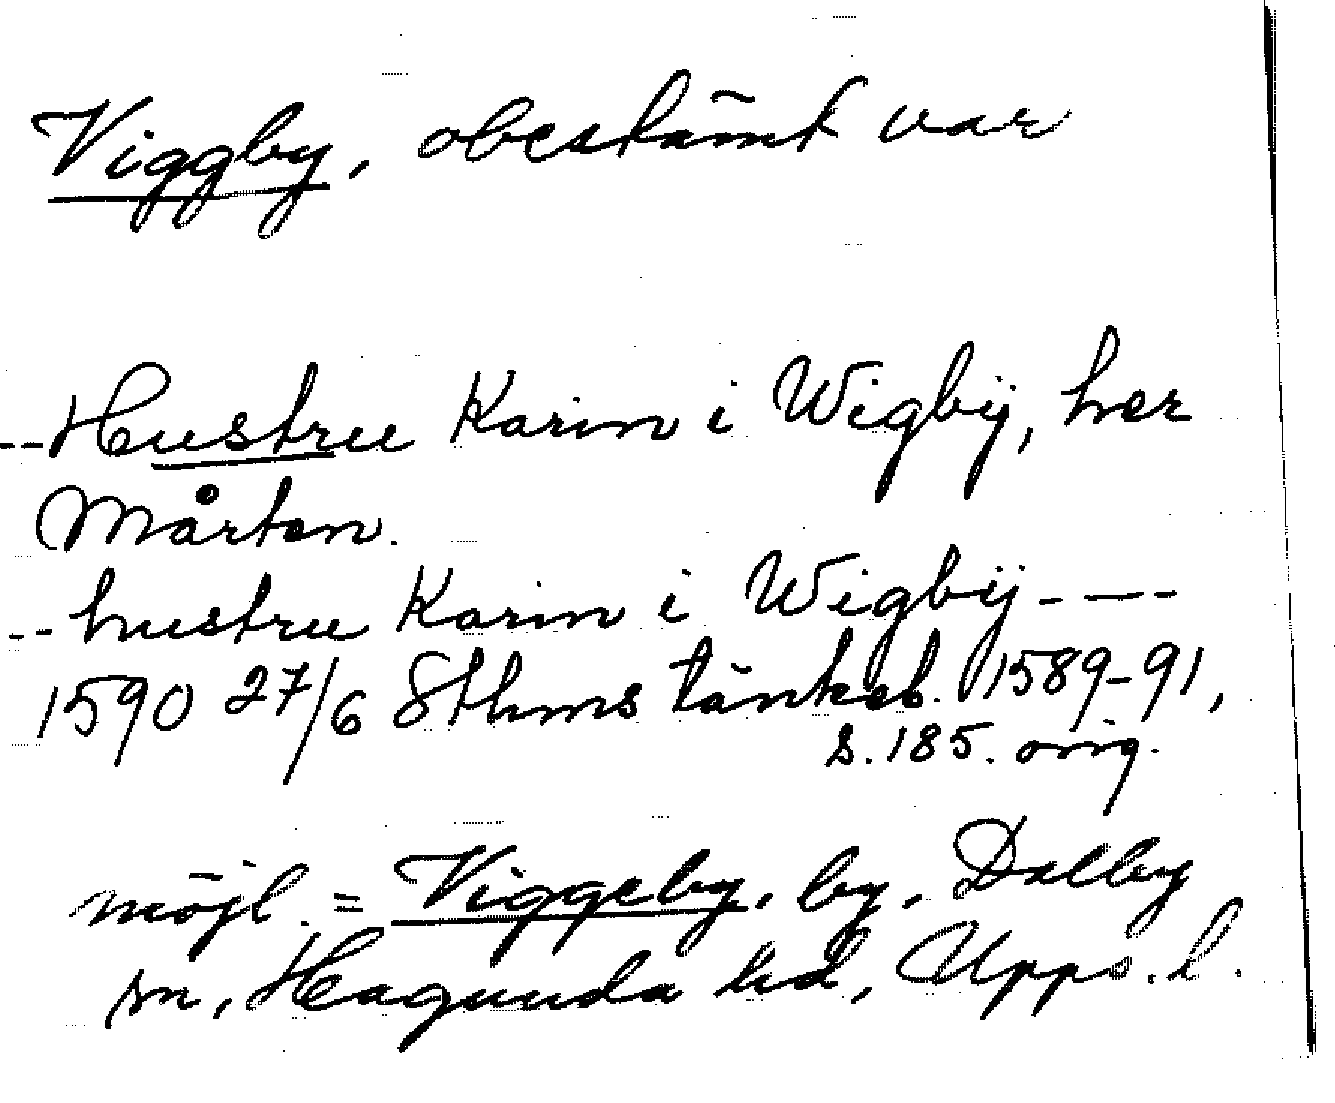 Viggby, obestämt var
--Hustru Karin i Wigbÿ, her
Mårten.
--hustru Karin i Wigbÿ----
1590 27/6 Sthms tänkeb. 1589-91,
s. 185. orig.
möjl. = Viggeby, by, Dalby
sn, Hagunda hd, Upps. l.